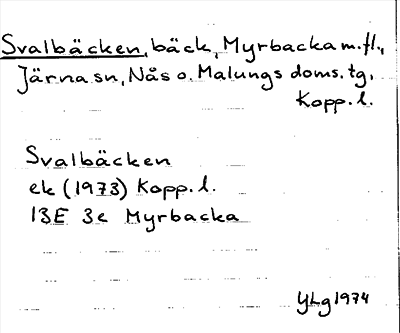 Svalbäcken, bäck, Myrbacka m.fl.,
Järna sn, Nås o. Malungs doms. tg,
Kopp. l.
Svalbäcken
ek (1973) Kopp. l.
13E 3e Myrbacka
YLg 1974